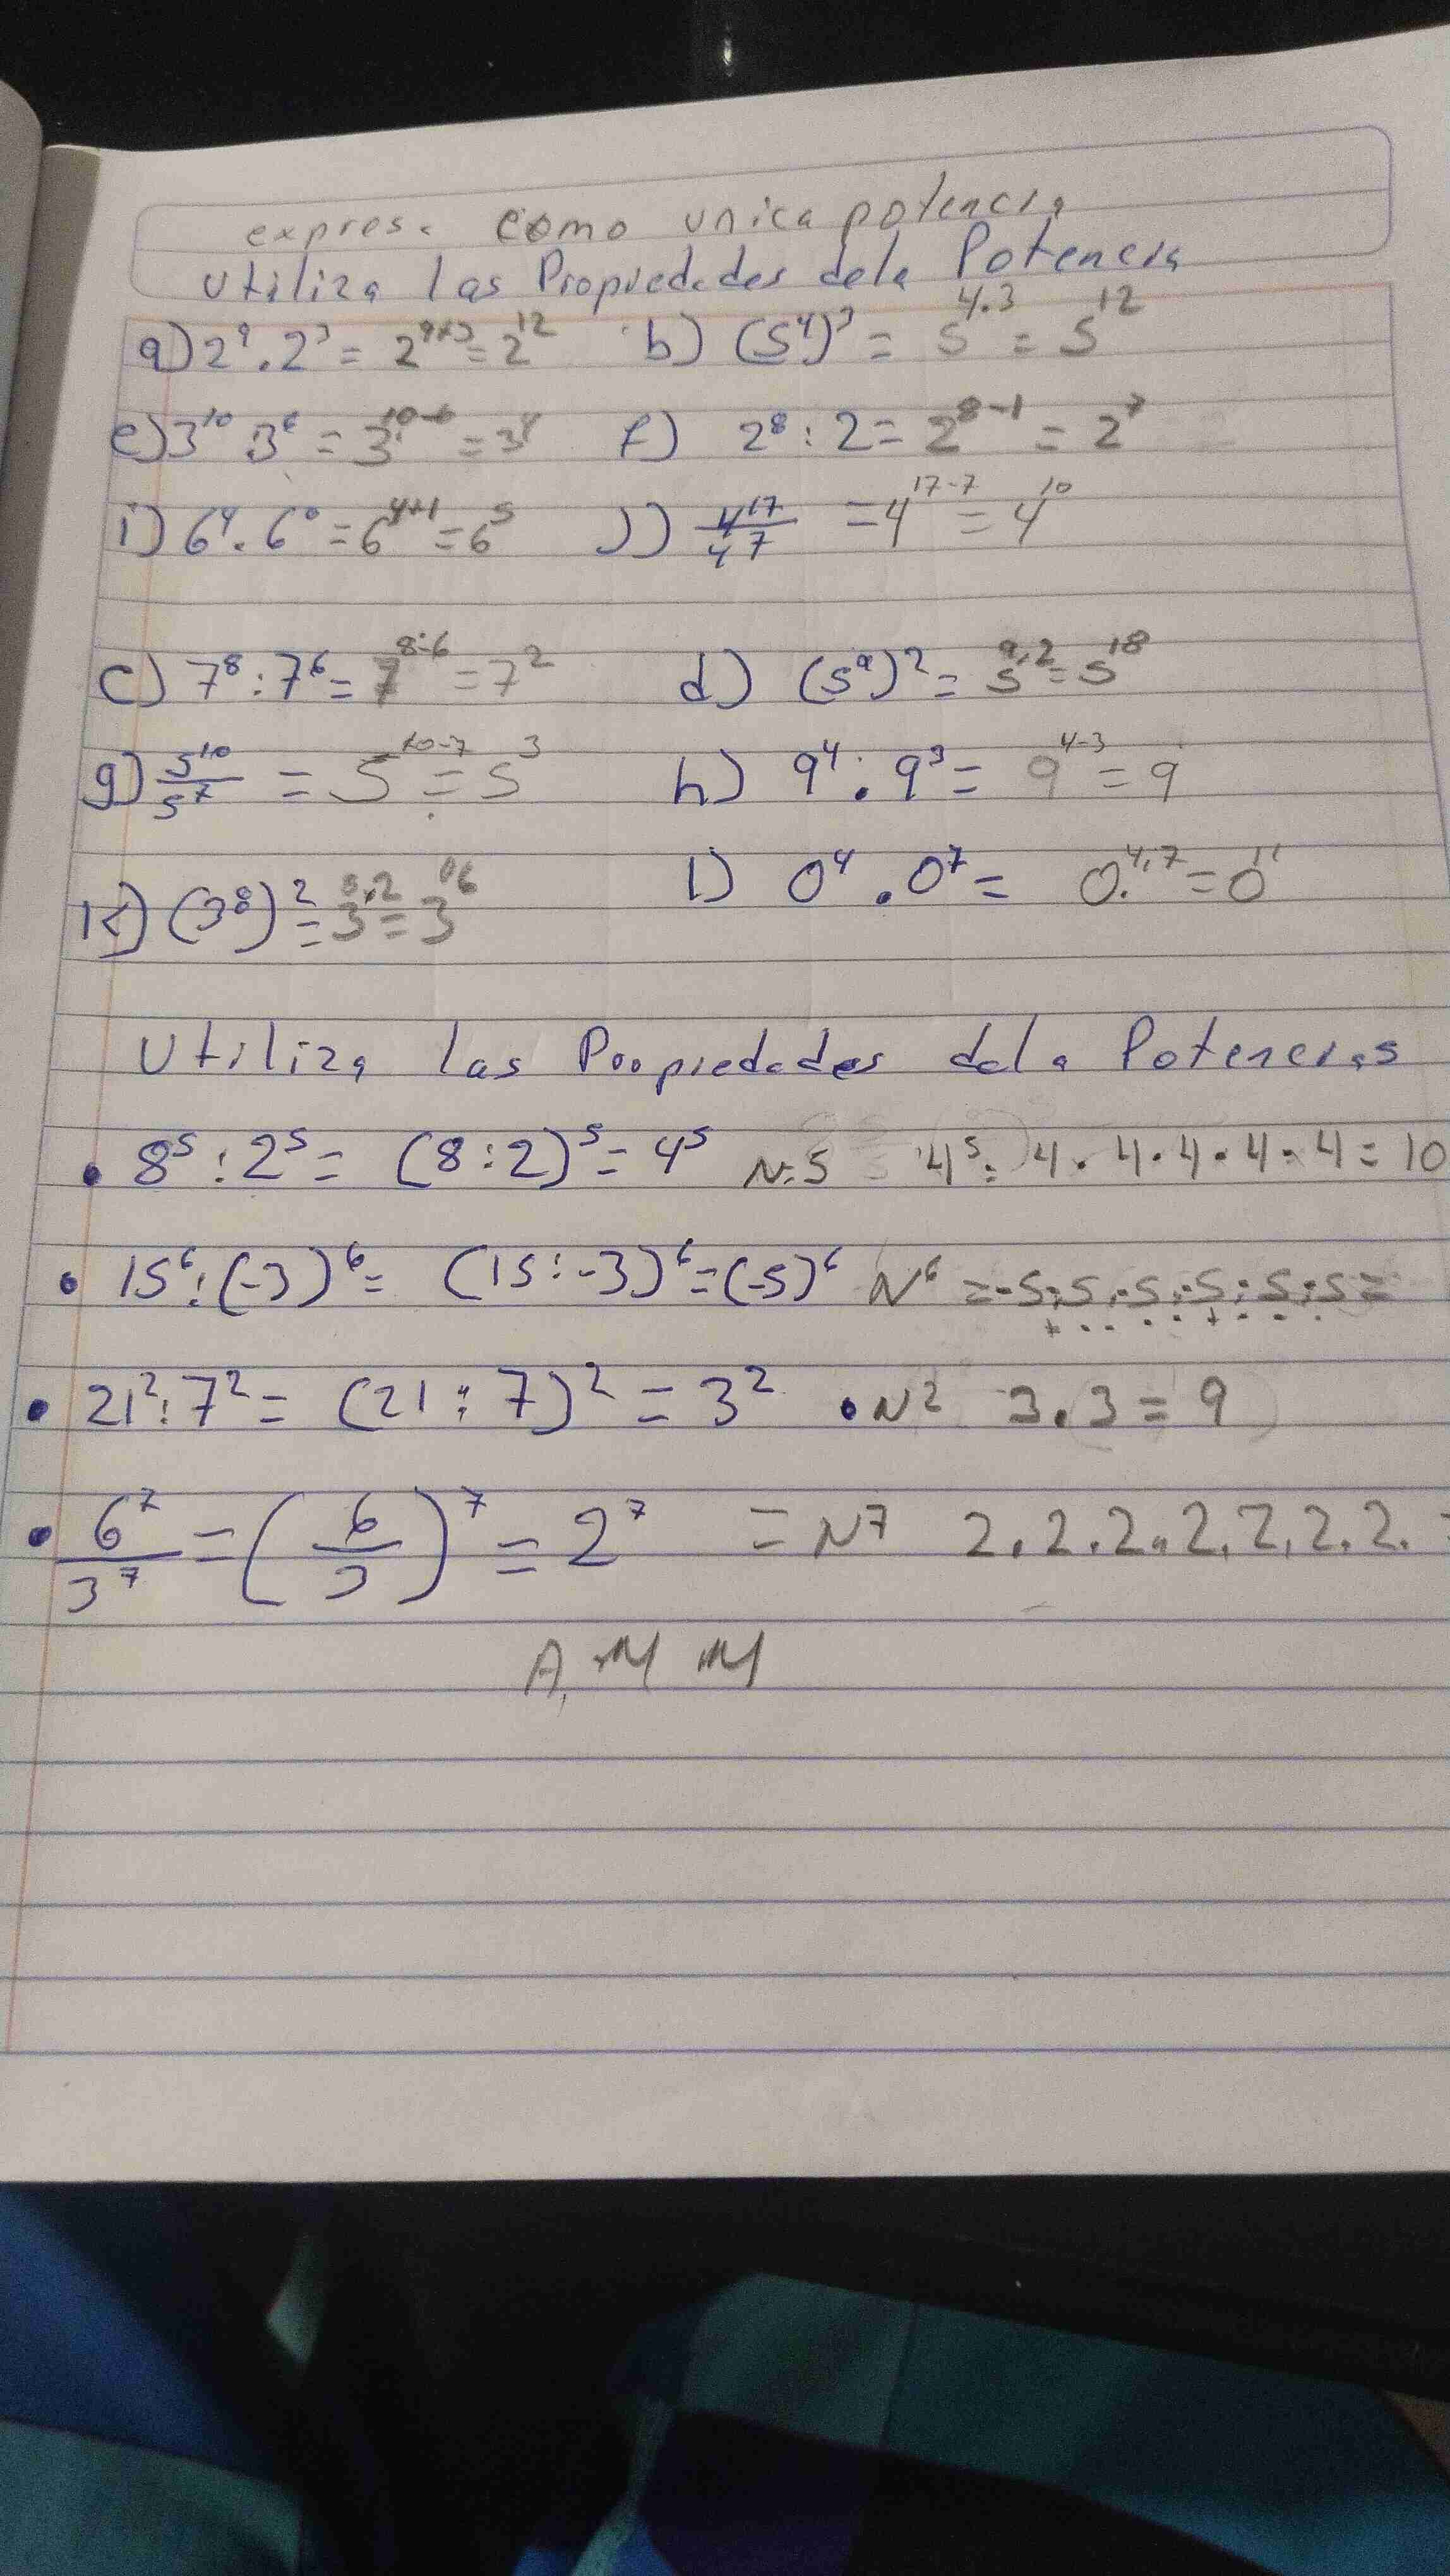 expres. como unica potencia
Utiliza las Propiedades de la Potencia
a) 2⁹ . 2³ = 2⁹⁺³ = 2¹² b) (5⁴)³ = 5⁴·³ = 5¹²
e) 3¹⁰ : 3⁶ = 3¹⁰⁻⁶ = 3⁴ f) 2⁸ : 2 = 2⁸⁻¹ = 2⁷
i) 6⁴ . 6⁰ = 6⁴⁺¹ = 6⁵ J) 4¹⁷/4⁷ = 4¹⁷⁻⁷ = 4¹⁰
c) 7⁸ : 7⁶ = 7⁸⁻⁶ = 7² d) (5⁹)² = 5⁹·² = 5¹⁸
g) 5¹⁰/5⁷ = 5¹⁰⁻⁷ = 5³ h) 9⁴ : 9³ = 9⁴⁻³ = 9
K) (3⁸)² = 3⁸·² = 3 l) 0⁴ . 0⁷ = 0⁴·⁷ = 0¹¹
Utiliza las Propiedades de la Potencias
• 8⁵ : 2⁵ = (8 : 2)⁵ = 4⁵ N:5 4⁵: 4 . 4 . 4 . 4 . 4 = 10
• 15⁶ : (-3)⁶ = (15 : -3)⁶ = (-5)⁶ N⁶
• 21² : 7² = (21 : 7)² = 3² • N² 3 . 3 = 9
• 6⁷/3⁷ = (6/3)⁷ = 2⁷ = N7 2 . 2 . 2 . 2 . 2 . 2 . 2 .